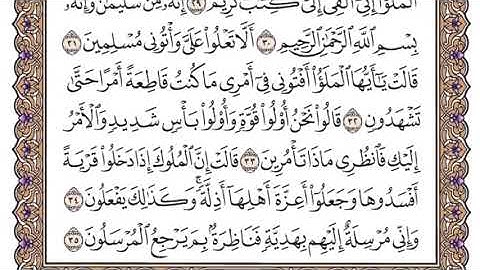 الْمَلَؤُا إِنِّي أُلْقِيَ إِلَيَّ كِتَابٌ كَرِيمٌ ٢٩ إِنَّهُ مِن سُلَيْمَانَ وَإِنَّهُ
بِسْمِ اللَّهِ الرَّحْمَٰنِ الرَّحِيمِ ٣٠ أَلَّا تَعْلُوا عَلَيَّ وَأْتُونِي مُسْلِمِينَ ٣١
قَالَتْ يَا أَيُّهَا الْمَلَؤُا أَفْتُونِي فِي أَمْرِي مَا كُنتُ قَاطِعَةً أَمْرًا حَتَّىٰ
تَشْهَدُونِ ٣٢ قَالُوا نَحْنُ أُولُوا قُوَّةٍ وَأُولُوا بَأْسٍ شَدِيدٍ وَالْأَمْرُ
إِلَيْكِ فَانظُرِي مَاذَا تَأْمُرِينَ ٣٣ قَالَتْ إِنَّ الْمُلُوكَ إِذَا دَخَلُوا قَرْيَةً
أَفْسَدُوهَا وَجَعَلُوا أَعِزَّةَ أَهْلِهَا أَذِلَّةً ۖ وَكَذَٰلِكَ يَفْعَلُونَ ٣٤
وَإِنِّي مُرْسِلَةٌ إِلَيْهِم بِهَدِيَّةٍ فَنَاظِرَةٌ بِمَ يَرْجِعُ الْمُرْسَلُونَ ٣٥